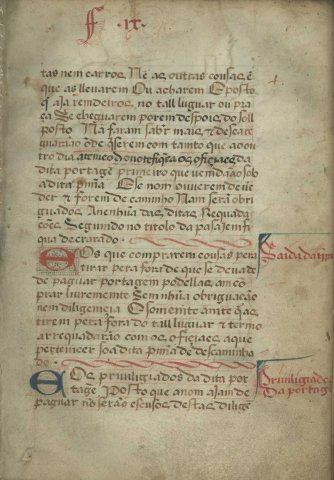 F · ix ·
tas nem carros. Nẽ as outras cousas ẽ
que as llevarem Ou acharem E posto
q̃ aJa remdeiros. no tall lugar ou pra
ça Se chegarem porem despois do soll
posto Nã faram sabẽr mais, & descarre
guarão õde q̃serem com tamto que ao ou
tro dia atemeo dia notefiquẽ os oficiaes da
dita portagẽ primeiro que vemdão sob
a dita pena E se nom ouverem de vẽ
der & forem de caminho Nam serã obri
guados A nenhũa das ditas Requada
ções Segumdo no titolo da pasaJem fi
qua decrarado
Os que comprarem cousas pera
tirar pera fora de que se deva de
de paguar portagem podellas am cõ
prar livremente Sem hũa obriguaçaõ
nem diligemcia E somente ante q̃ as
tirem pera fora do tall lugar & termo
arrequadaraão com os oficiaes a que
pertencer so a dita pena de descaminha
do
Saida da
Os priviligiados da dita por
tagẽ Posto que a nom aJam de
paguar nõ serão escusos destas dilligẽ
Priviligiados
Da portagẽ